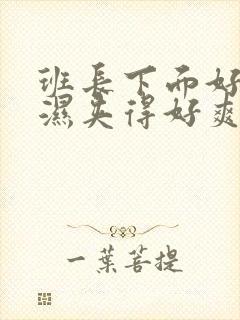 班长下面好
濕夹得好爽
一葉菩提